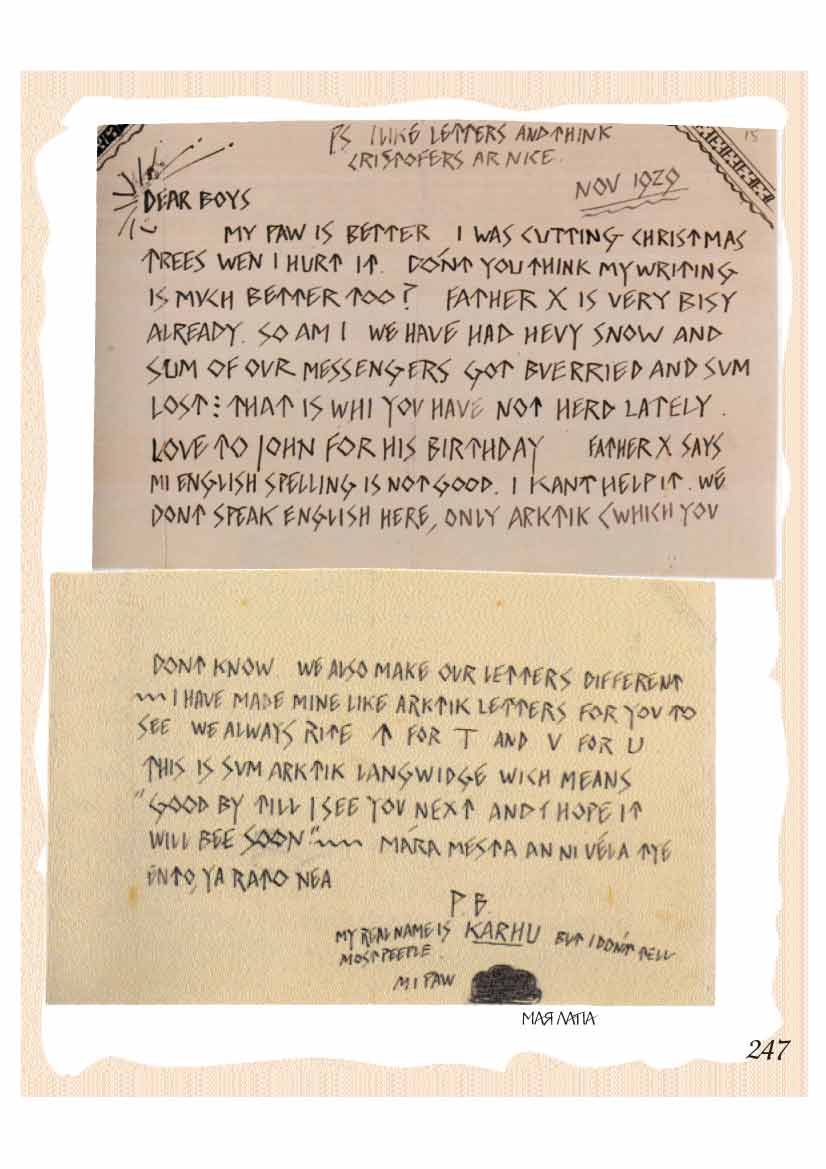 PS I LIKE LETTERS AND THINK
CRISTOFERS AR NICE.
15
NOV 1929
DEAR BOYS
MY PAW IS BETTER I WAS CUTTING CHRISTMAS
TREES WEN I HURT IT. DON'T YOU THINK MY WRITING
IS MVCH BETTER TOO? FATHER X IS VERY BISY
ALREADY. SO AM I WE HAVE HAD HEVY SNOW AND
SUM OF OVR MESSENGERS GOT BVERRIED AND SVM
LOST: THAT IS WHI YOU HAVE NOT HERD LATELY.
LOVE TO JOHN FOR HIS BIRTHDAY FATHER X SAYS
MI ENGLISH SPELLING IS NOT GOOD. I KANT HELP IT. WE
DONT SPEAK ENGLISH HERE, ONLY ARKTIK (WHICH YOU
DONT KNOW WE ALSO MAKE OUR LETTERS DIFFERENT
~~ I HAVE MADE MINE LIKE ARKTIK LETTERS FOR YOU TO
SEE WE ALWAYS RITE ↑ FOR T AND V FOR U
THIS IS SVM ARKTIK LANGWIDGE WICH MEANS
"GOOD BY TILL I SEE YOU NEXT AND I HOPE IT
WILL BEE SOON." ~~ MÁRA MESTA AN NI VÉLA TYE
ENTO, YA RATO NÉA
P.B.
MY REAL NAME IS KARHU BUT I DON'T TELL
MOST PEEPLE.
MI PAW
МАЯ ЛАПА
247